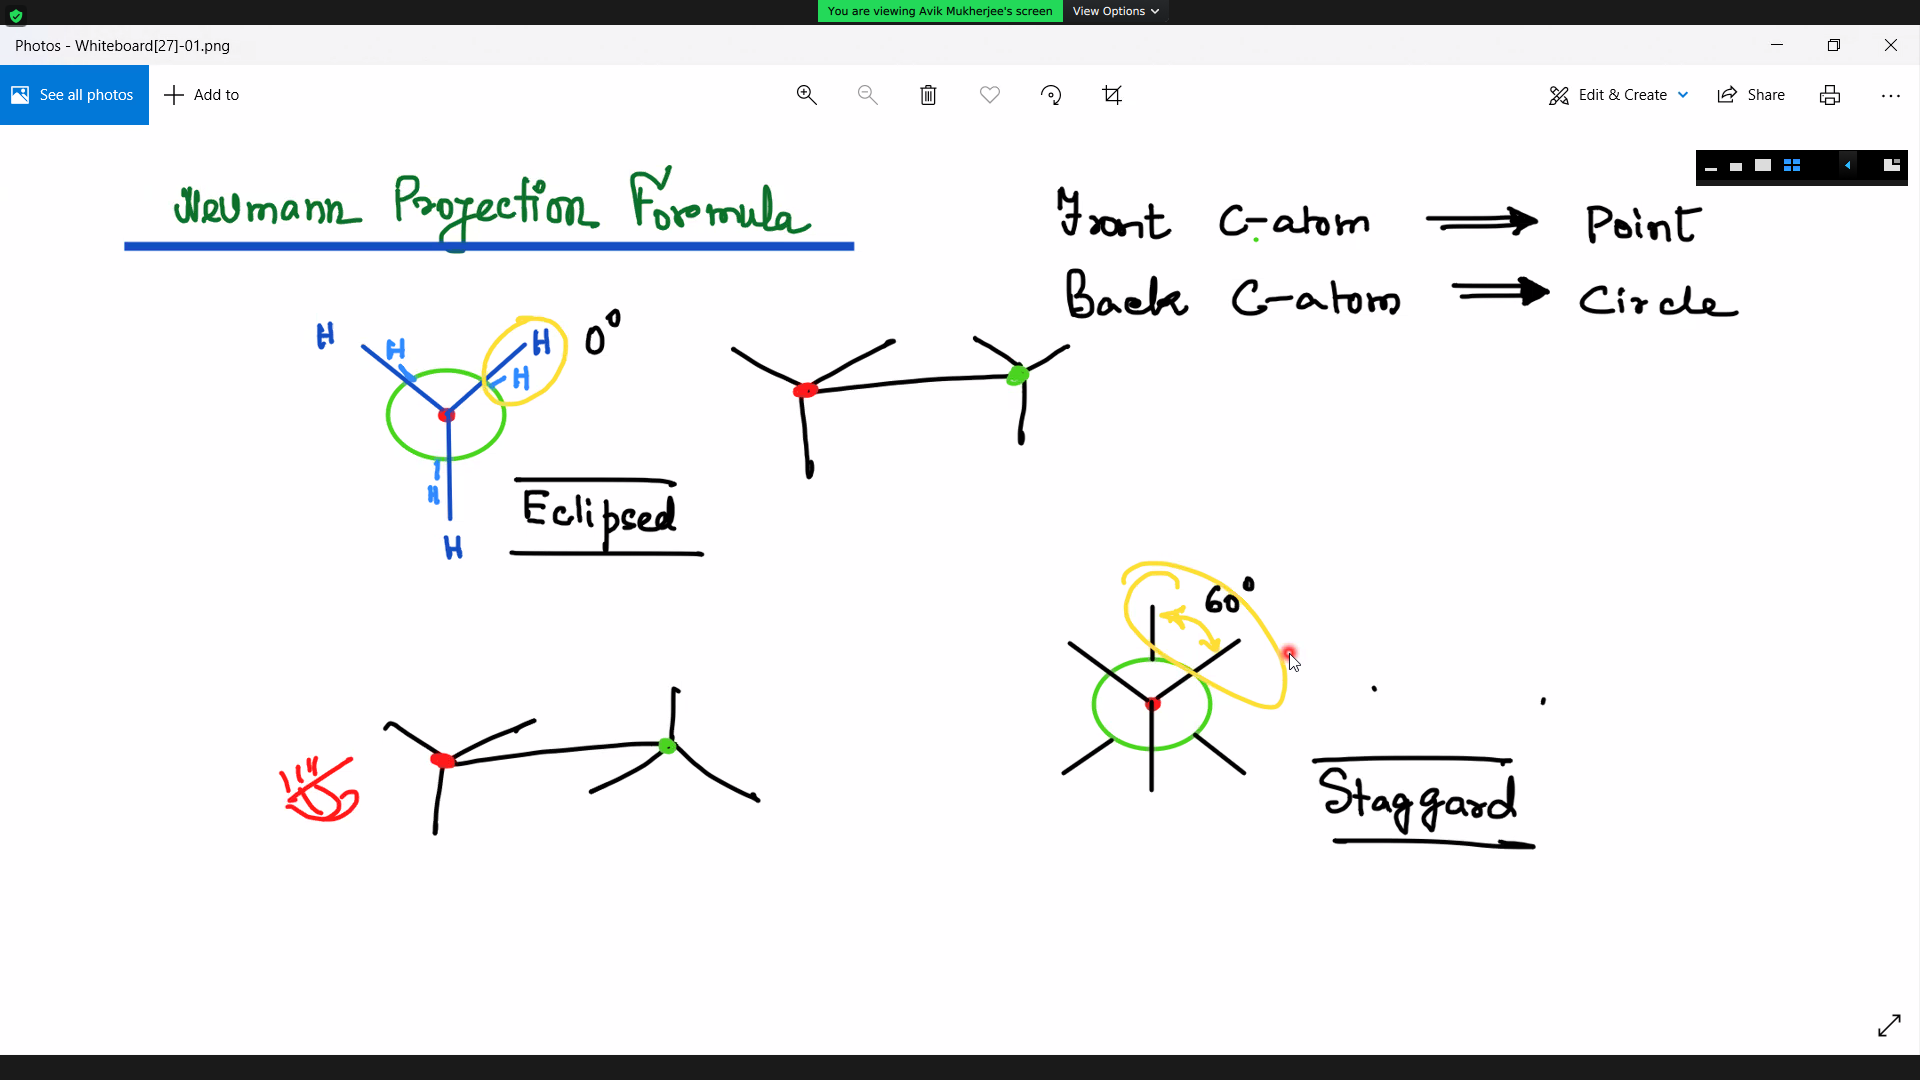 You are viewing Avik Mukherjee's screen View Options
Photos - Whiteboard[27]-01.png
See all photos Add to Edit & Create Share
Neumann Projection Formula
Front C-atom ⟹ Point
Back C-atom ⟹ Circle
H H H 0°
H
H
H
Eclipsed
60°
Staggard